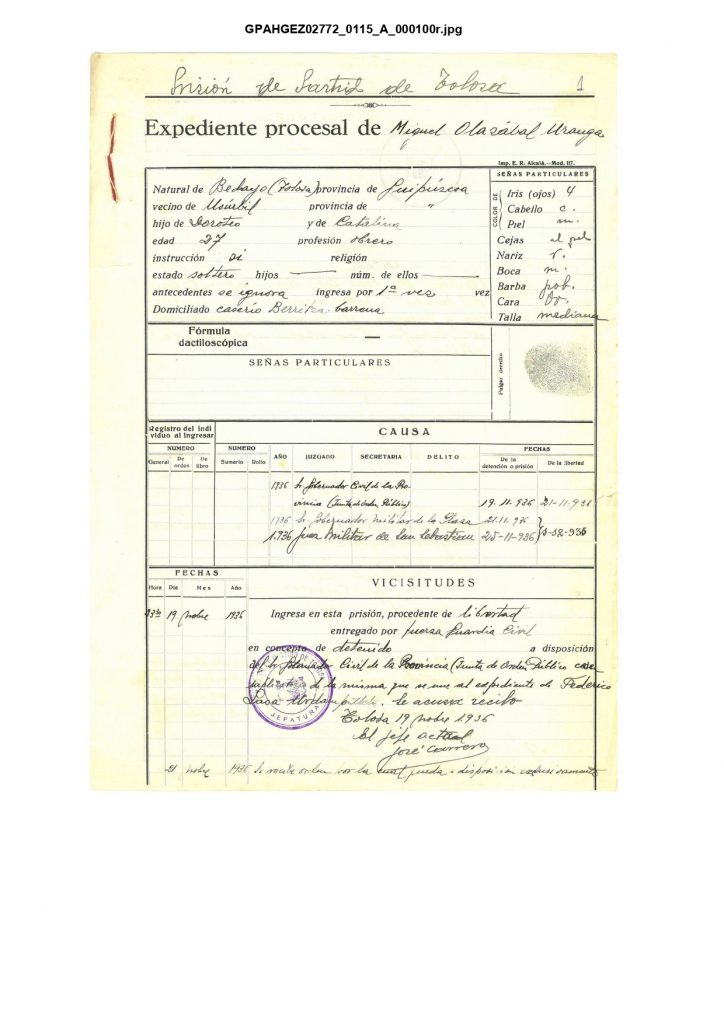 GPAHGEZ02772_0115_A_000100r.jpg
Prisión de Partido de Tolosa 1
Expediente procesal de Miguel Olazábal Uranga
Imp. E. R. Alcalá.-Mod. 117.
SEÑAS PARTICULARES
Natural de Bedayo (Tolosa) provincia de Guipúzcoa
vecino de Usúrbil provincia de "
hijo de Doroteo y de Catalina
edad 27 profesión obrero
instrucción si religión
estado soltero hijos — núm. de ellos —
antecedentes se ignora ingresa por 1ª ves vez
Domiciliado caserío Berrika barrena
COLOR DE
Iris (ojos) 4
Cabello c.
Piel m.
Cejas al pel
Nariz r.
Boca m.
Barba pob.
Cara Ov.
Talla mediana
Fórmula
dactiloscópica —
SEÑAS PARTICULARES
Pulgar derecho
Registro del indi
viduo al ingresar
CAUSA
NUMERO
NUMERO
AÑO JUZGADO SECRETARIA DELITO
FECHAS
General De orden De libro
Sumario Rollo
De la detención o prisión
De la libertad
1936 Sr Gobernador Civil de la Pro
vincia (Junta de Orden Público) 19-11-936 21-11-936
1936 Sr. Gobernador Militar de la Plaza 21.11.936
1.936 Juez Militar de San Sebastian 25-11-936
FECHAS
VICISITUDES
Hora Día Mes Año
23h 19 Nobre 1936 Ingresa en esta prisión, procedente de libertad
entregado por fuerza Guardia Civil
en concepto de detenido a disposición
del Sr Gobernador Civil de la Provincia (Junta de Orden Público
de la misma que se une al expediente de Federico
se acusa recibo
Tolosa 19 Nobre 1936
El jefe actual
José Carrera
JEFATURA
21 Nobre 1936 Se recibe orden por la cual queda a disposición exclusivamente